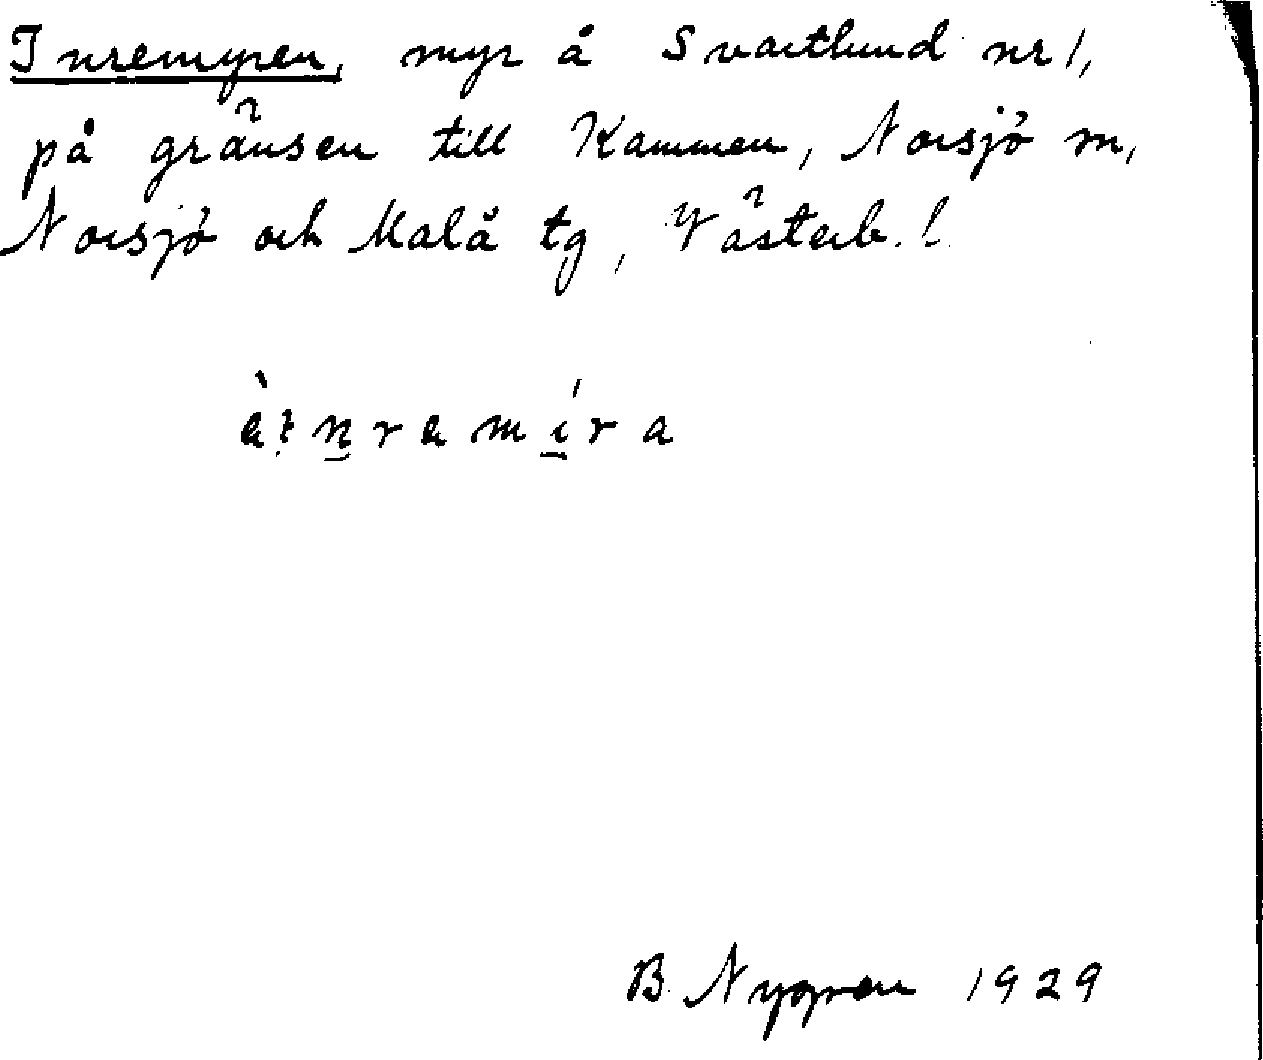 Inremyren, myr å Svartlund nr 1,
på gränsen till Kammen, Norsjö m,
Norsjö och Malå tg, Västerb. l.
B. Nygren 1929